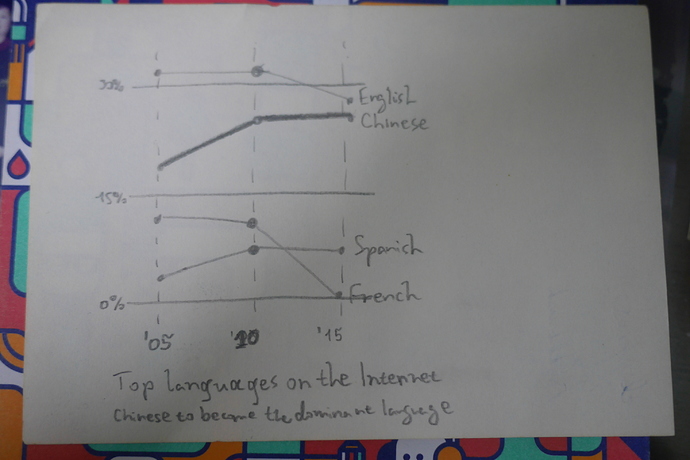 30%
English
Chinese
15%
Spanish
French
0%
'05 '10 '15
Top languages on the Internet
Chinese to become the dominant language